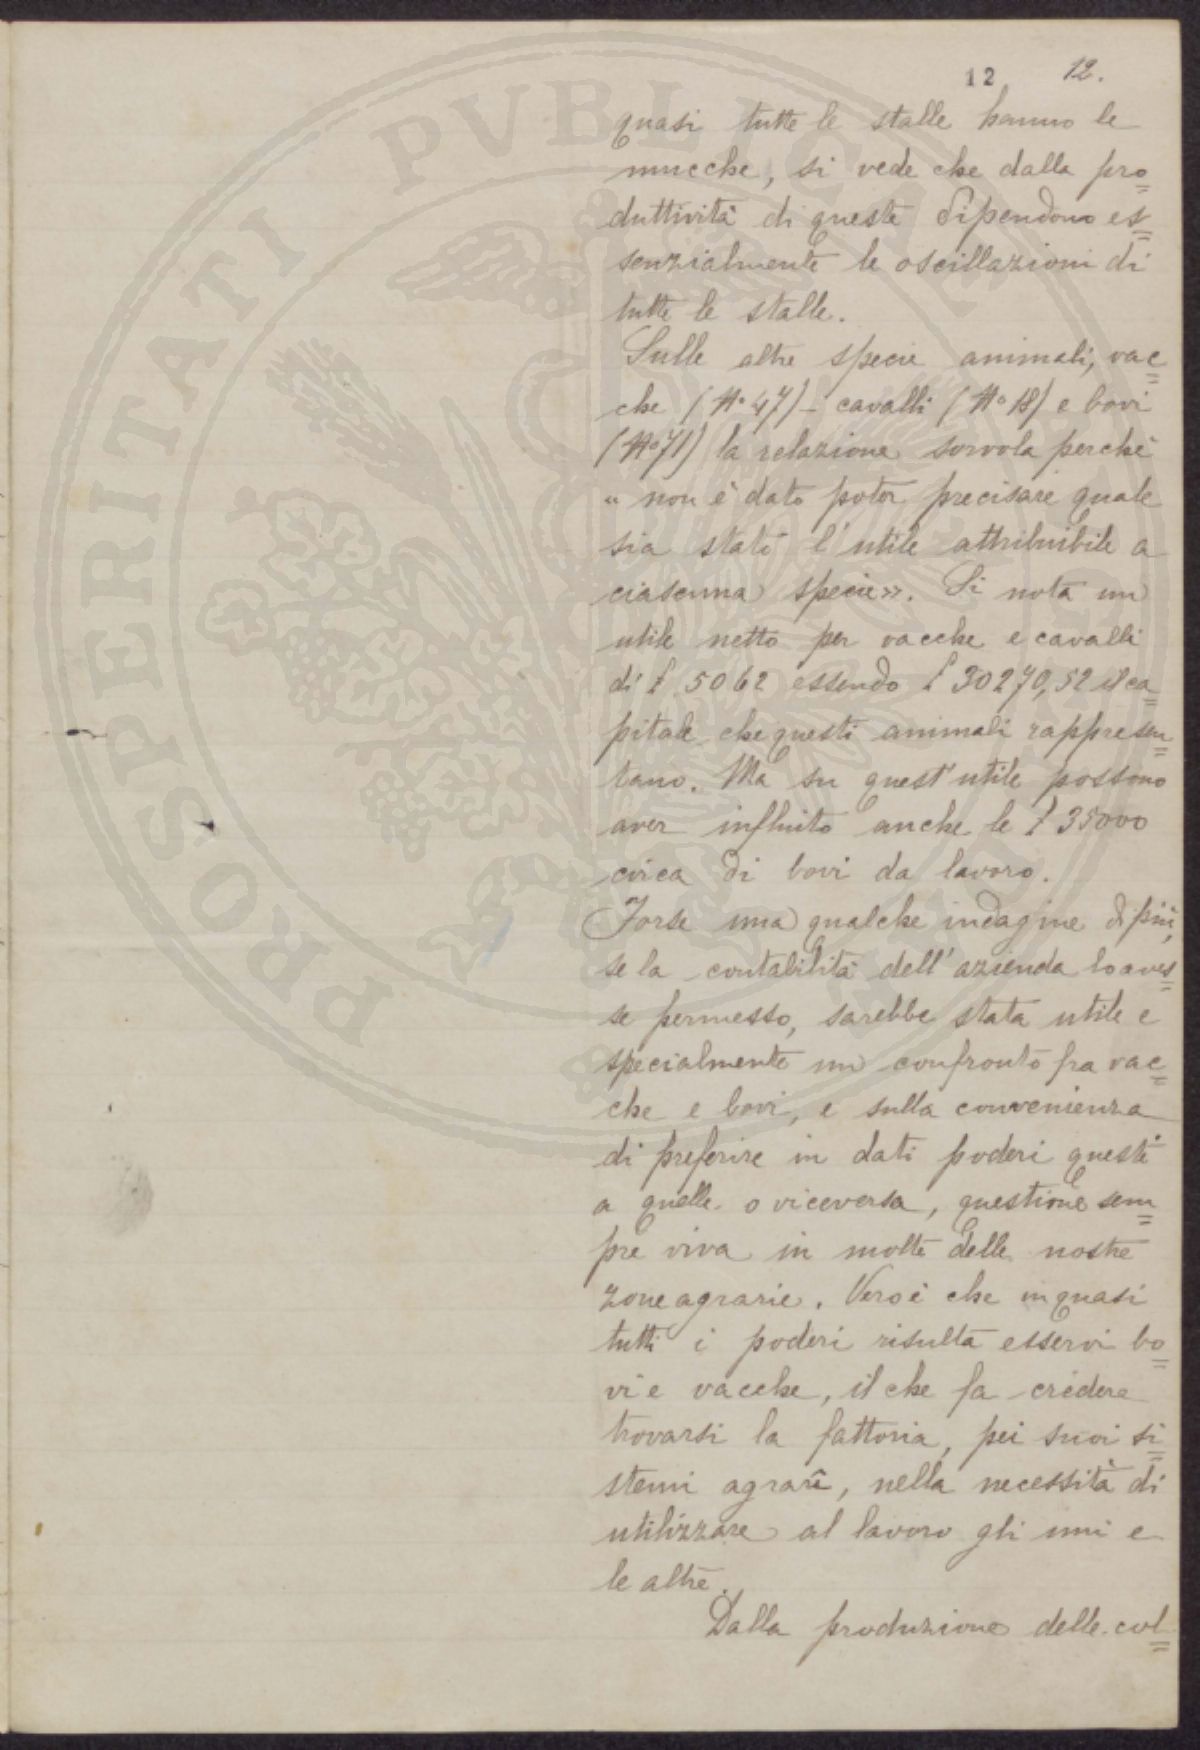 12 12.
quasi tutte le stalle hanno le
mucche, si vede che dalla pro=
duttività di queste dipendono es=
senzialmente le oscillazioni di
tutte le stalle.
Sulle altre specie animali, vac=
che (N° 47) – cavalli (N° 18) e bovi
(N° 71) la relazione sorvola perchè
« non è dato poter precisare quale
sia stato l'utile attribuibile a
ciascuna specie». Si nota un
utile netto per vacche e cavalli
di £ 5062 essendo £ 30270,52 il ca=
pitale che questi animali rappresen=
tano. Ma su quest'utile possono
aver influito anche le £ 35000
circa di bovi da lavoro.
Forse una qualche indagine di più,
se la contabilità dell'azienda lo aves=
se permesso, sarebbe stata utile e
specialmente un confronto fra vac=
che e bovi, e sulla convenienza
di preferire in dati poderi questi
a quelle o viceversa, questione sem=
pre viva in molte delle nostre
zone agrarie. Vero è che in quasi
tutti i poderi risulta esservi bo=
vi e vacche, il che fa credere
trovarsi la fattoria, pei suoi si=
stemi agrarî, nella necessità di
utilizzare al lavoro gli uni e
le altre.
Dalla produzione delle col=
PROSPERITATI PVBLICAE